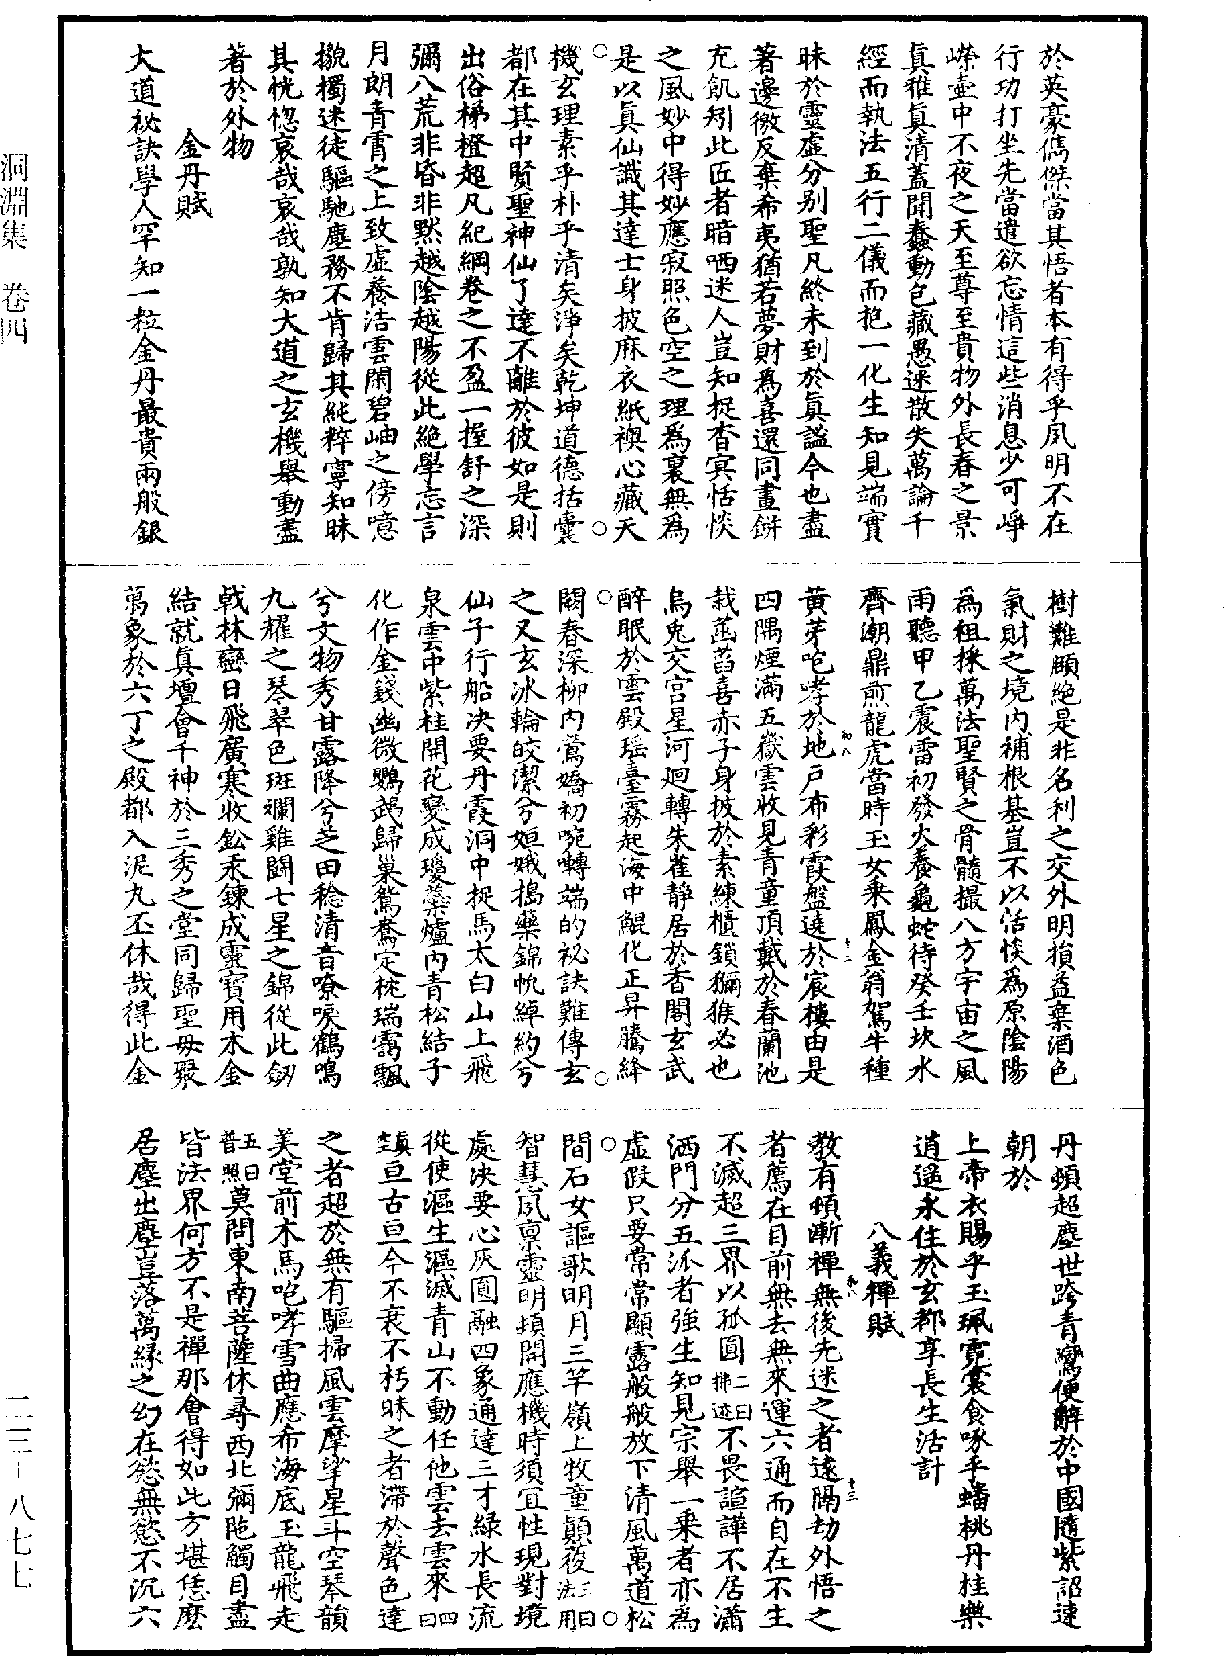 洞淵集　卷四
於英豪儁傑當其悟者本有得乎夙明不在
行功打坐先當遣欲忘情這些消息少可崢
嶸壺中不夜之天至尊至貴物外長春之景
真稚真清蓋聞蠢動包藏愚迷散失萬論千
經而執法五行二儀而抱一化生知見端實
昧於靈虛分别聖凡終未到於真謚今也盡
著邊徼反棄希夷猶若夢財為喜還同畫餅
充飢矧此匠者暗哂迷人豈知捉杳冥恬惔
之風妙中得妙應寂照色空之理為裏無為
是以真仙識其達士身披麻衣紙襖心藏天
機玄理素乎朴乎清矣淨矣乾坤道德括囊
都在其中賢聖神仙了達不離於彼如是則
出俗梯橙超凡紀綱卷之不盈一握舒之深
彌八荒非昏非默越陰越陽從此絶學忘言
月朗青霄之上致虛養浩雲閑碧岫之傍噫
擨擉迷徒驅馳塵務不肯歸其純粹寧知昧
其恍惚哀哉哀哉孰知大道之玄機舉動盡
著於外物
金丹賦
大道祕訣學人罕知一粒金丹最貴兩般銀
樹難願絶是非名利之交外明損益棄酒色
氣財之境内補根基豈不以恬惔為原陰陽
為祖採萬法聖賢之骨髓撮八方宇宙之風
雨聽甲乙震雷初發火養龜蛇待癸壬坎水
齊潮鼎煎龍虎當時玉女乘鳳金翁駕牛種
黄芽咆哮於地戶布彩霞盤遶於宸樓由是
四隅煙滿五嶽雲收見青童頂戴於春蘭池
栽菡萏喜赤子身披於素練櫃鎖獼猴必也
烏兔交宫星河迴轉朱雀靜居於香閣玄武
醉眠於雲殿瑶臺霧起海中鯤化正昇騰絳
闕春深柳内鶯嬌初啘囀端的祕訣難傳玄
之又玄冰輪皎潔兮姮娥搗藥錦帆綽約兮
仙子行船决要丹霞洞中捉馬太白山上飛
泉雲中紫桂開花變成瓊蘂爐内青松結子
化作金錢幽微鸚鵡歸巢鴛鴦定枕瑞靄飄
兮文物秀甘露降兮芝田稔清音嘹唳鶴鳴
九耀之琴翠色斑斕雞鬪七星之錦從此劒
戟林巒日飛廣寒收鈆汞鍊成靈寶用木金
結就真壇會千神於三秀之堂同歸聖母聚
萬象於六丁之殿都入泥丸丕休哉得此金
丹頓超塵世跨青鸞便辭於中國隨紫詔速
朝於
上帝衣賜乎玉珮霓裳食啄乎蟠桃丹桂樂
逍遥永住於玄都享長生活計
八義禪賦
教有頓漸禪無後先迷之者遠隔劫外悟之
者薦在目前無去無來運六通而自在不生
不滅超三界以孤圓二曰拂迹不畏諠譁不居瀟
洒門分五派者強生知見宗舉一乘者亦為
虛跂只要常常顯露般般放下清風萬道松
間石女謳歌明月三竿嶺上牧童顛蕧三曰法用
智慧夙禀靈明頓開應機時須冝性現對境
處决要心灰圓融四象通達三才綠水長流
從使漚生漚滅青山不動任他雲去雲來四曰
真空亘古亘今不衰不朽昧之者滯於聲色達
之者超於無有驅掃風雲摩挲星斗空琴韻
美堂前木馬咆哮雪曲應希海底玉龍飛走
五曰普照莫問東南菩薩休尋西北彌陁觸目盡
皆法界何方不是禪那會得如此方堪恁麽
居塵出塵豈落萬緣之幻在慾無慾不沉六
二三－八七七